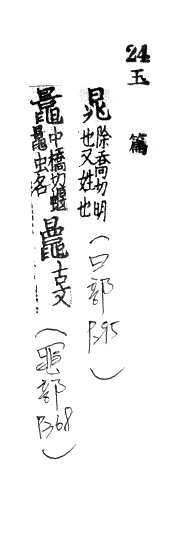 24 玉篇
晁 除喬切明也又姓也 (日部 P395)
鼂 中橋切蝘鼂虫名 鼂 古文…… (黽部 P368)